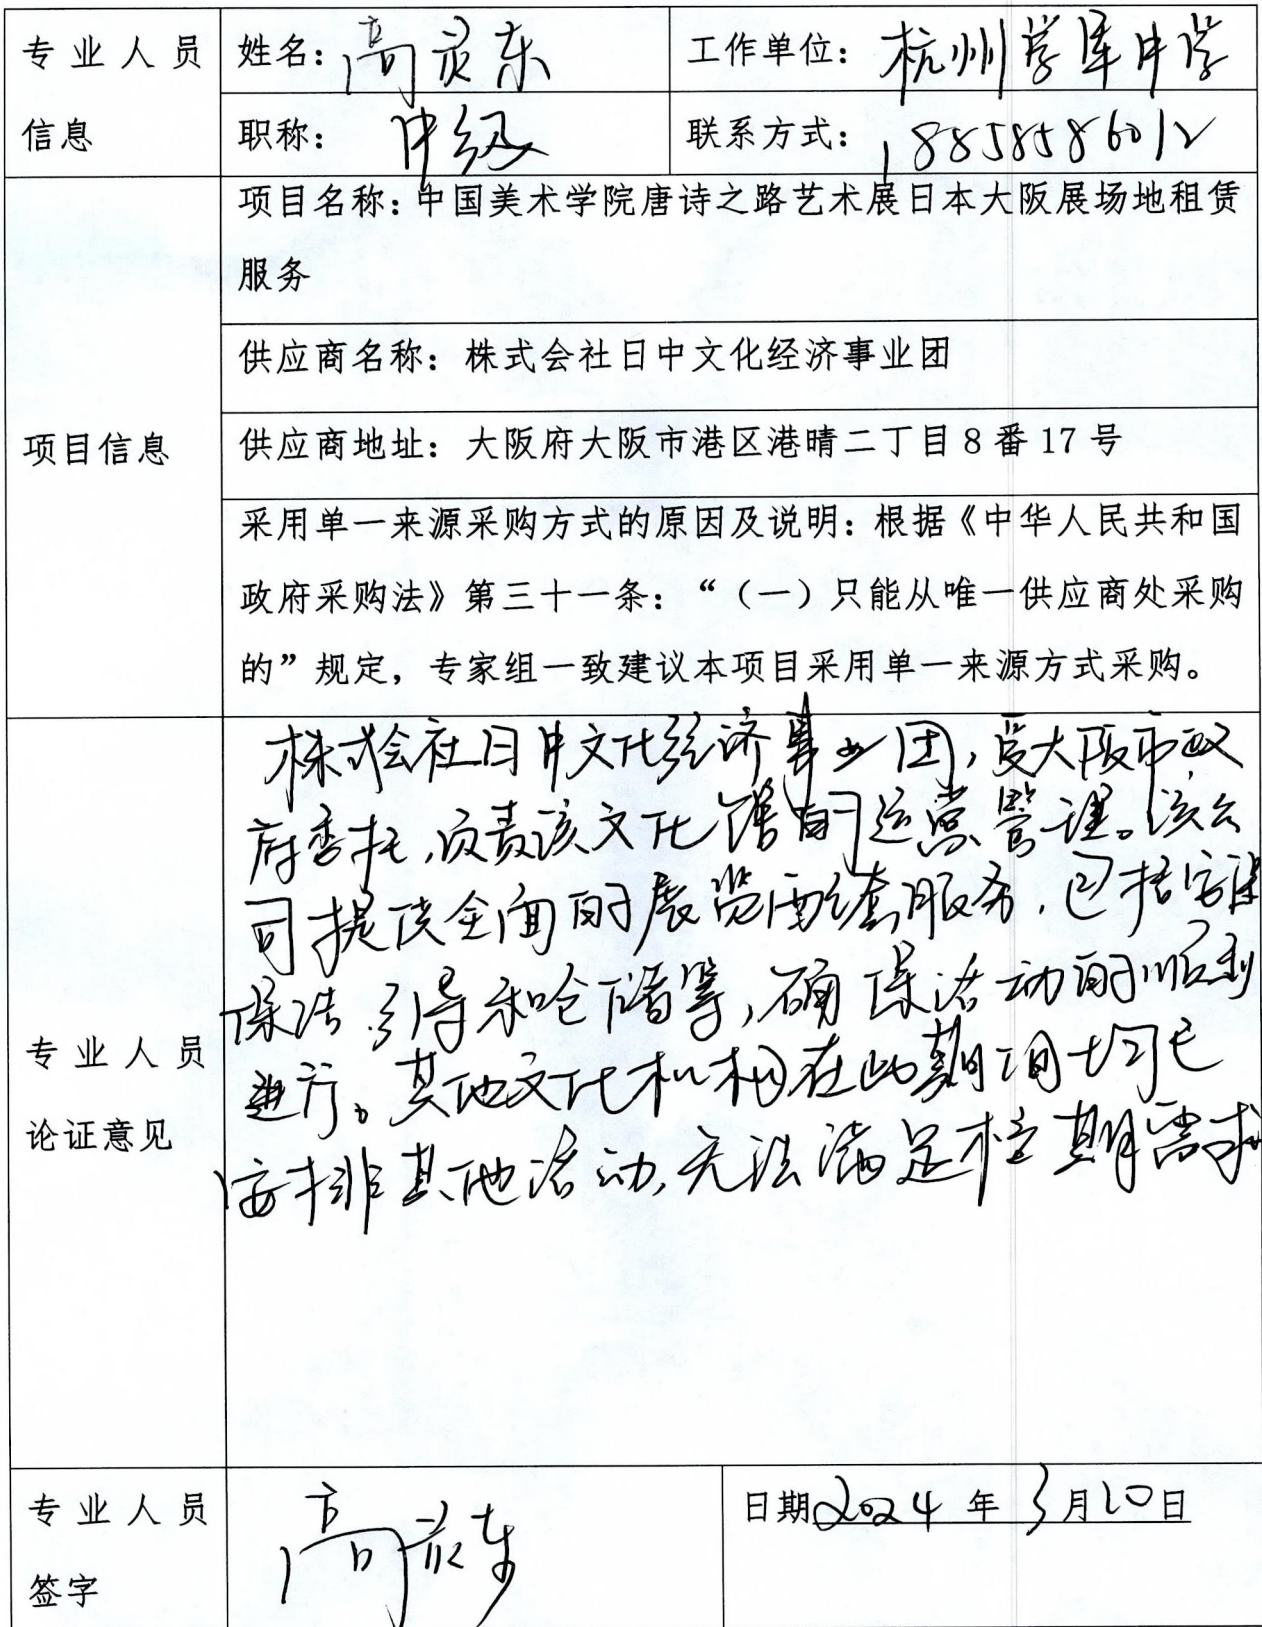 专业人员
信息
姓名：高灵东
工作单位：杭州学军中学
职称：中级
联系方式：18858586012
项目信息
项目名称：中国美术学院唐诗之路艺术展日本大阪展场地租赁
服务
供应商名称：株式会社日中文化经济事业团
供应商地址：大阪府大阪市港区港晴二丁目8番17号
采用单一来源采购方式的原因及说明：根据《中华人民共和国
政府采购法》第三十一条：“（一）只能从唯一供应商处采购
的”规定，专家组一致建议本项目采用单一来源方式采购。
专业人员
论证意见
株式会社日中文化经济事业团，受大阪市政
府委托，负责该文化馆的运营管理。该公
司提供全面的展览配套服务，包括安保
保洁、引导和仓储等，确保活动的顺利
进行。其他文化机构在此期间均已
安排其他活动，无法满足档期需求
专业人员
签字
高灵东
日期2024年3月20日